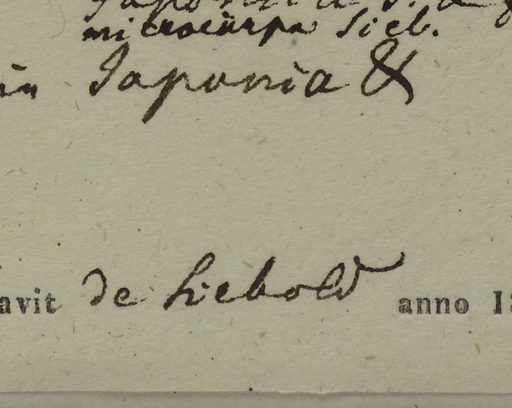 microcarpa Sieb.
in Japonia &
avit de Siebold anno 18